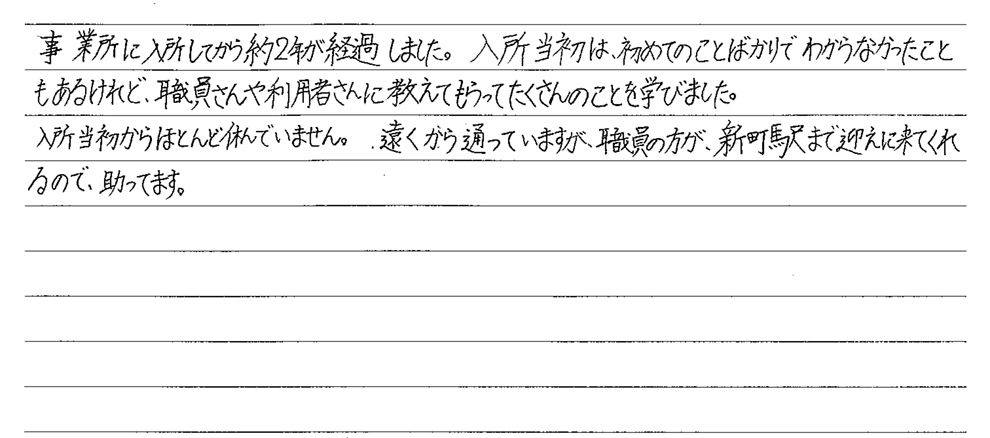 事業所に入所してから約2年が経過しました。入所当初は、初めてのことばかりでわからなかったこと
もあるけれど、職員さんや利用者さんに教えてもらってたくさんのことを学びました。
入所当初からほとんど休んでいません。遠くから通っていますが、職員の方が、新町駅まで迎えに来てくれ
るので、助ってます。